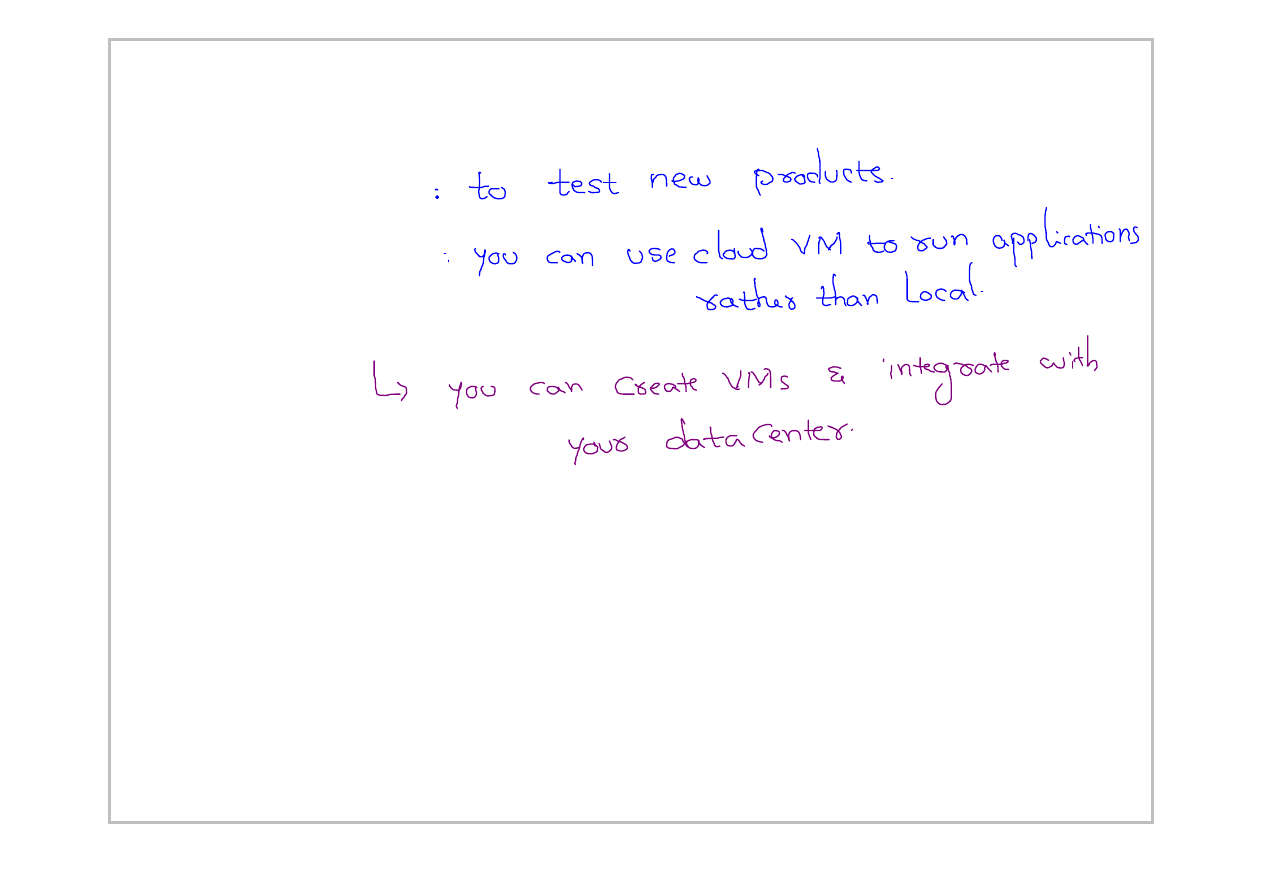 : to test new products.
: you can use cloud VM to run applications
rather than Local.
↳ you can Create VMs & integrate with
your data Center.